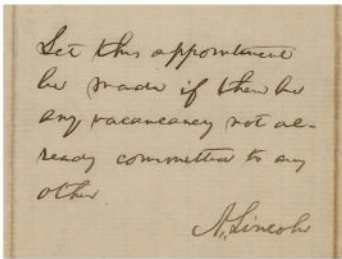 Let this appointment
be made if there be
any vacancancy not al-
ready committed to any
other
A. Lincoln